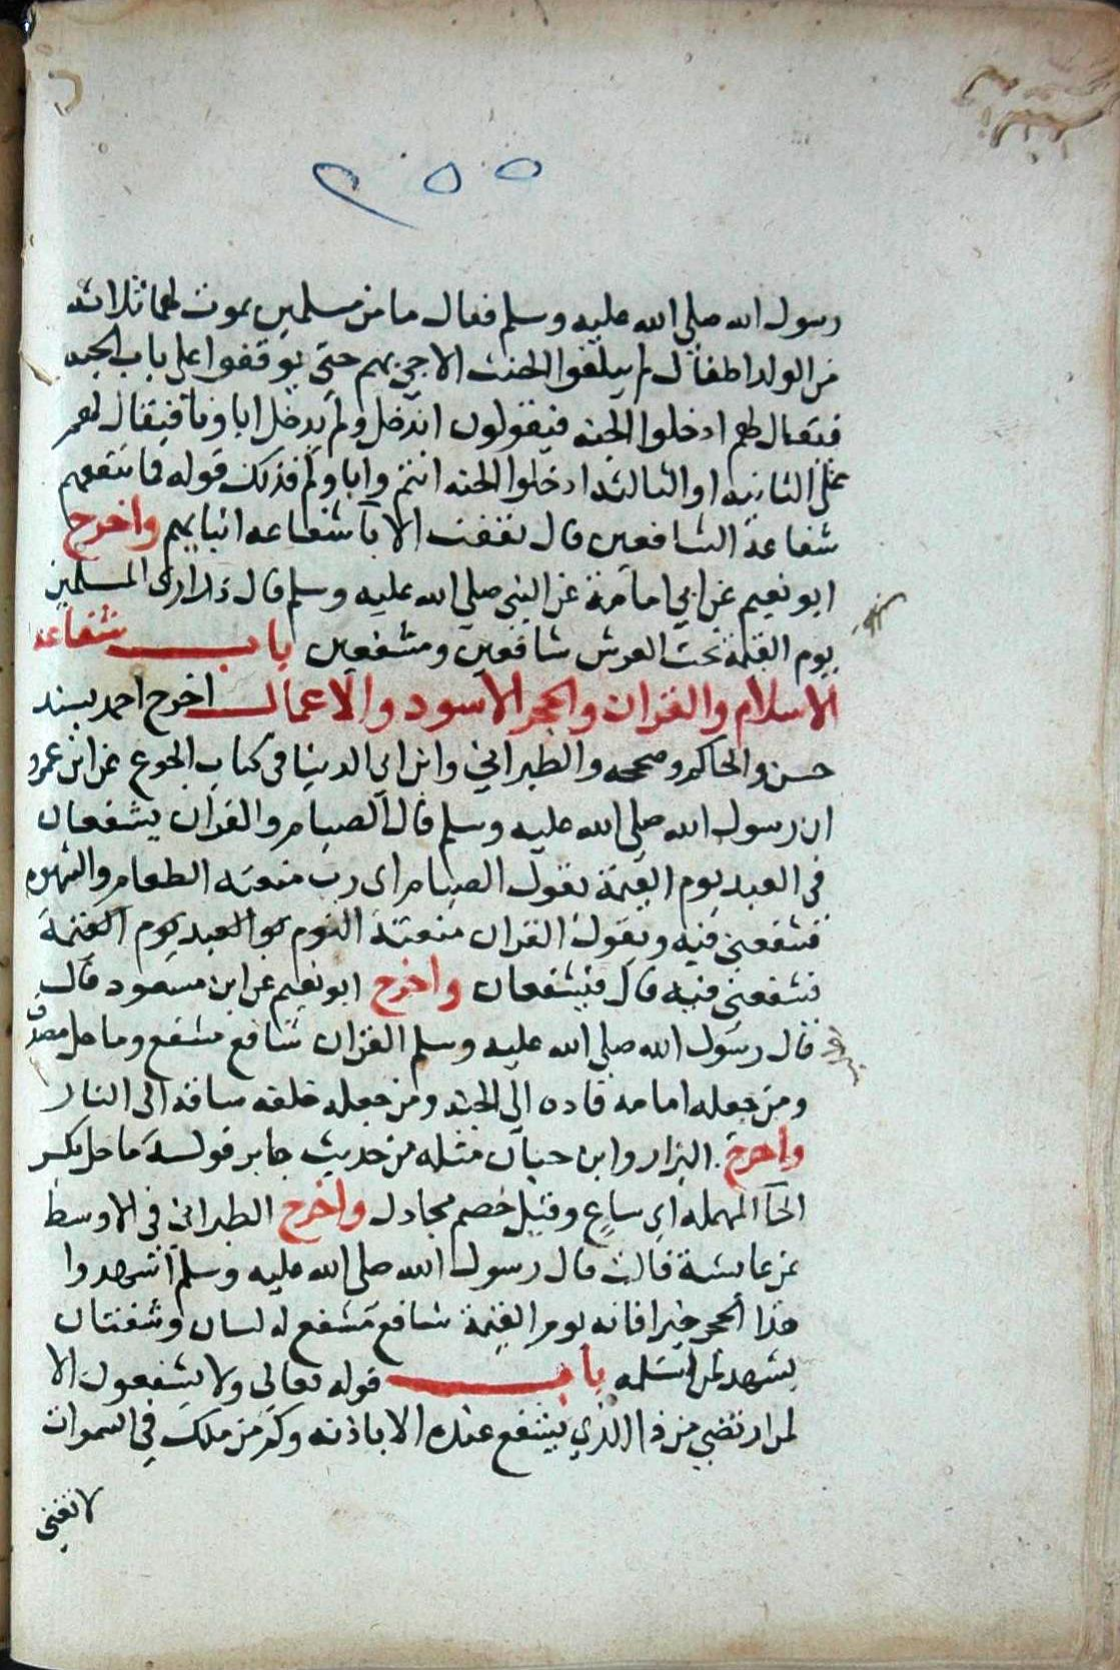 ٢٥٥
رسول الله صلى الله عليه وسلم فقال ما من مسلمين يموت لهما ثلاثه
من الولد اطفال لم يبلغوا الحنث الا جي بهم حتى يوقفوا على باب الجنه
فيقال لهم ادخلوا الجنه فيقولون اندخل ولم يدخل اباونا فيقال لهم
في الثانيه او الثالثه ادخلوا الجنه انتم واباوكم فذلك قوله فما تنفعهم
شفاعة الشافعين قال نفعت الابآ شفاعه ابنايهم واخرج
ابو نعيم عن ابي امامة عن النبي صلى الله عليه وسلم قال ذراري المسلمين
يوم القيمة تحت العرش شافعين ومشفعين باب شفاعه
الاسلام والقران والحجر الاسود والاعمال اخرج احمد بسند
حسن والحاكم وصححه والطبراني وابن ابي الدنيا في كتاب الجوع عن ابن عمرو
ان رسول الله صلى الله عليه وسلم قال الصيام والقران يشفعان
في العبد يوم القيمة يقول الصيام اى رب منعته الطعام والشهوه
فشفعني فيه ويقول القران منعته النوم يوم القيمة
فشفعني فيه قال فيشفعان واخرج ابو نعيم عن ابن مسعود قال
قال رسول الله صلى الله عليه وسلم القران شافع مشفع وماحل مصدق
ومن جعله امامه قاده الى الجنه ومن جعله خلفه ساقه الى النار
واخرج البزار وابن حبان مثله من حديث جابر قوله ماحل بكسر
الحآ المهمله اي ساع وقيل خصم مجادل واخرج الطبراني في الاوسط
عن عايشة قالت قال رسول الله صلى الله عليه وسلم اشهدوا
هذا الحجر خيرا فانه يوم القيمة شافع مشفع له لسان وشفتان
يشهد لمن استلمه باب قوله تعالى ولا يشفعون الا
لمن ارتضي من ذا الذي يشفع عنده الا باذنه وكم من ملك في السموات
لا تغني